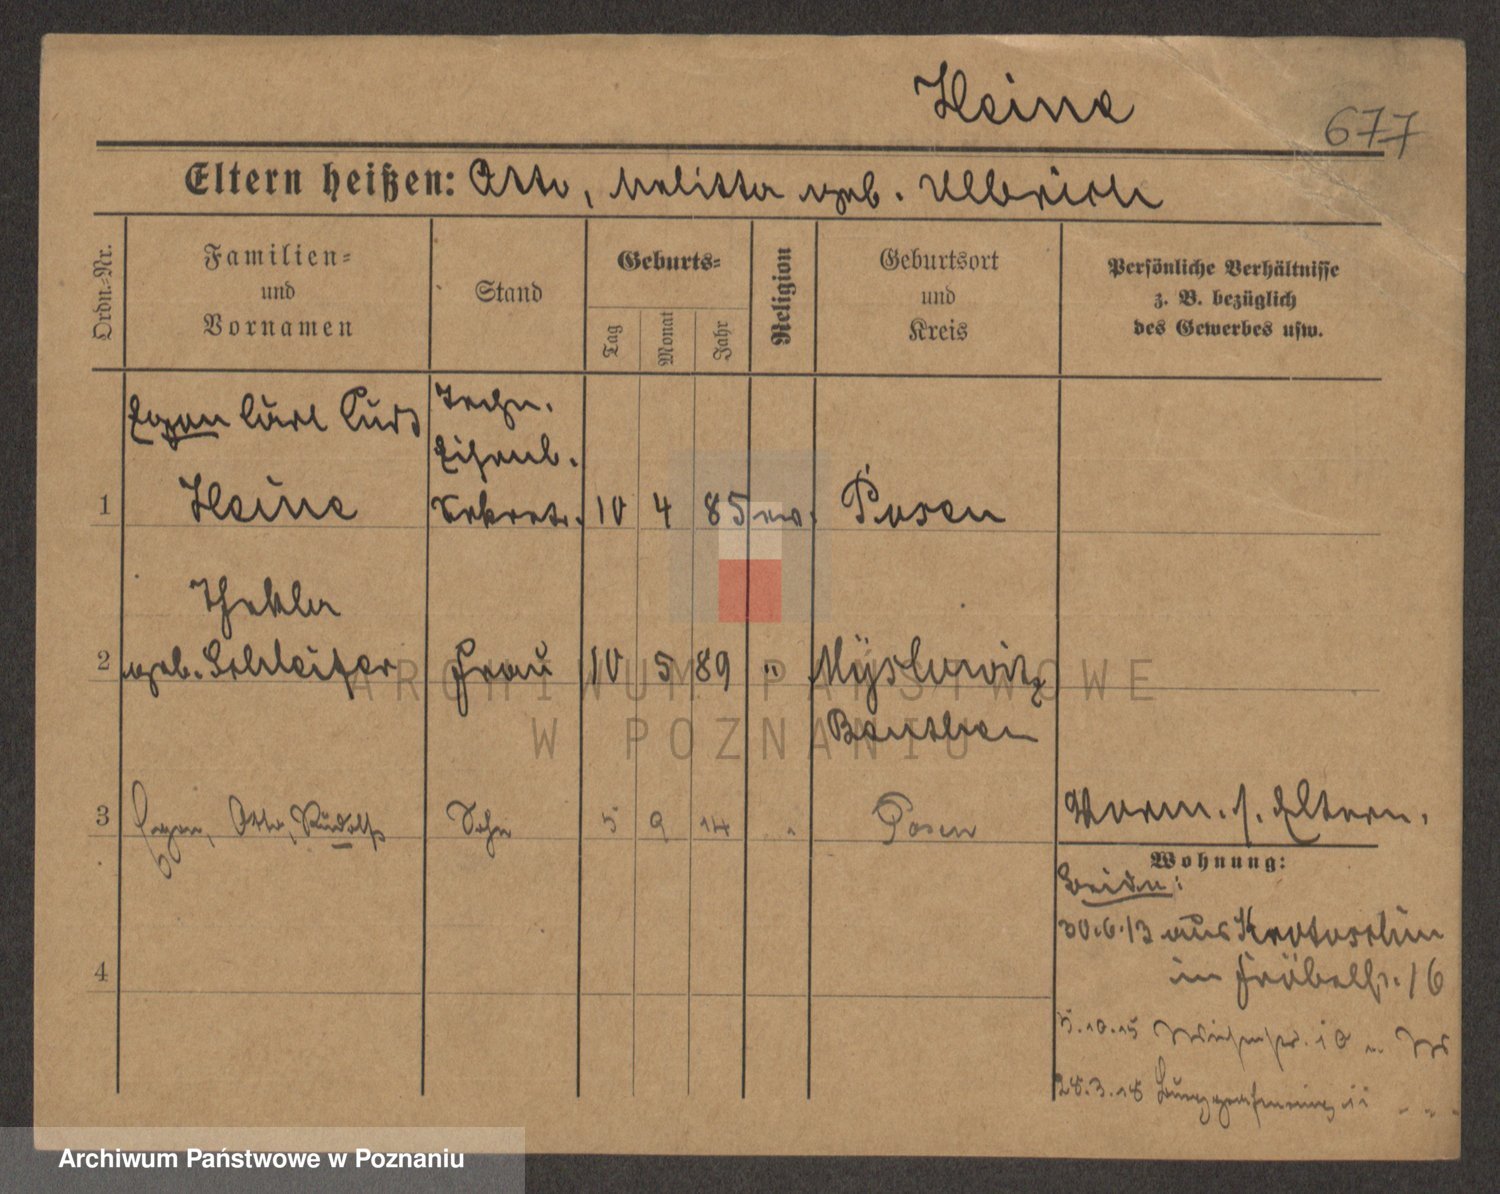 Heine
677
Eltern heißen: Otto, Melitta geb. Ullrich
Ordn.-Nr.
Familien-
und
Vornamen
Stand
Geburts-
Tag
Monat
Jahr
Religion
Geburtsort
und
Kreis
Persönliche Verhältnisse
z. B. bezüglich
des Gewerbes usw.
Egon Curt
Techn.
Eisenb.
1 Heine Sekret. 10 4 85 ev. Posen
Thekla
2 geb. Schleifer Frau 10 5 89 " Myslowitz
Beuthen
3 Egon, Otto, Rudolf Sohn 5 9 14 " Posen
Vorm. s. Eltern.
Wohnung:
Beide:
30.6.13 aus Krotoschin
in Fröbelstr. 16
4
5.10.15 10
28.3.18 11 " " "
ARCHIWUM PAŃSTWOWE
W POZNANIU
Archiwum Państwowe w Poznaniu